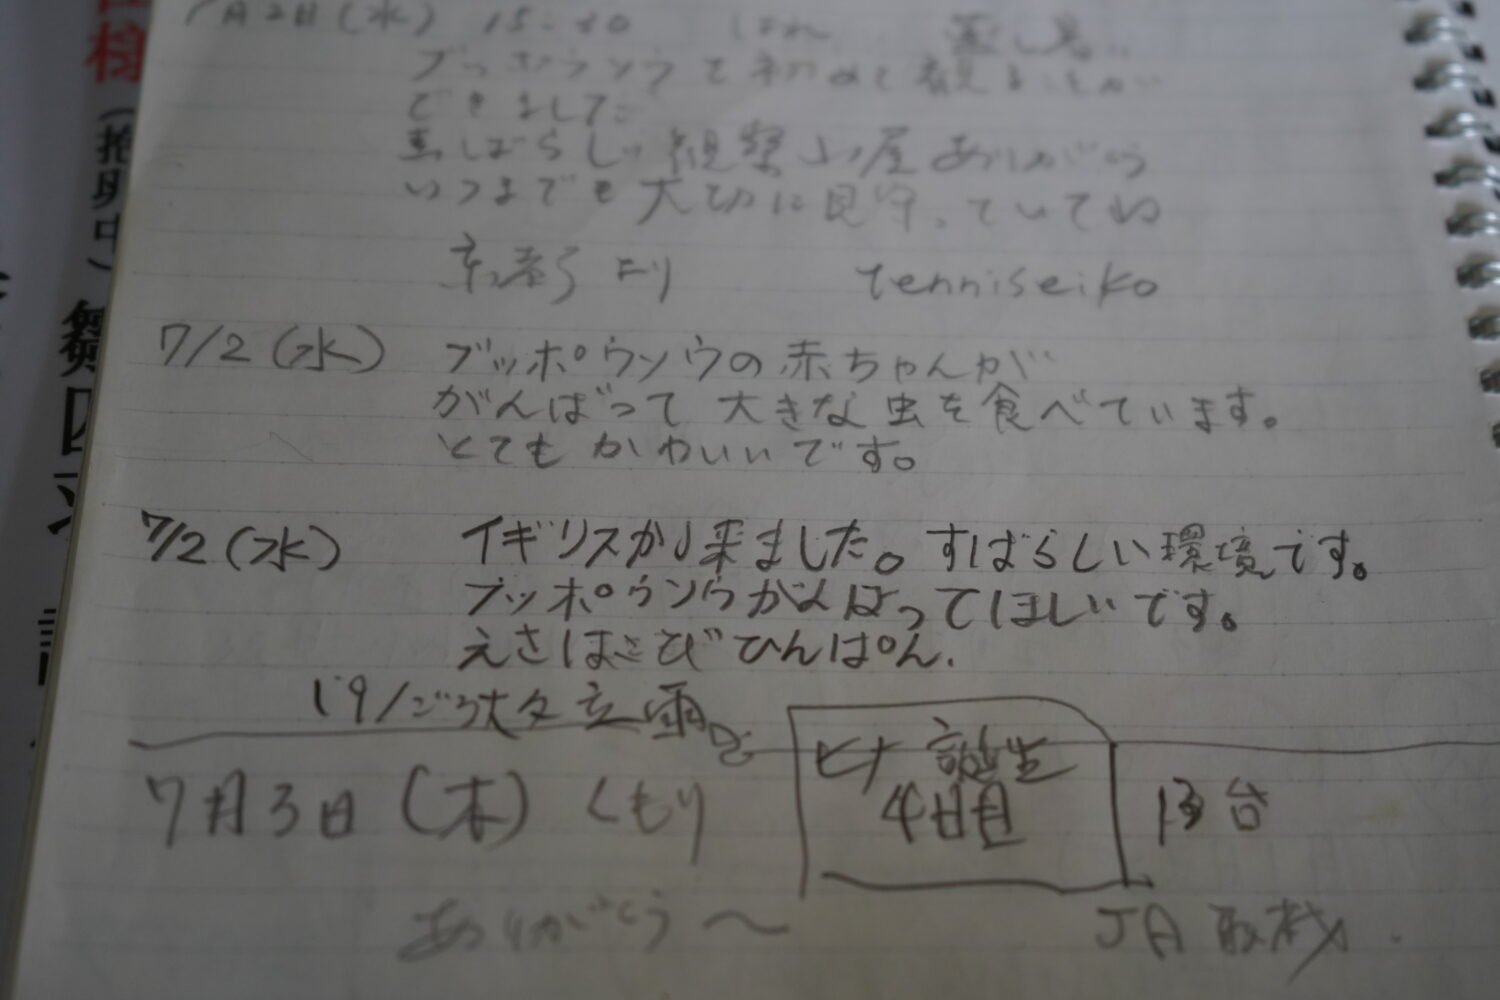 月2日(水) 15-
ブッポウソウを初めて観ることが
できました
すばらしい観察小屋ありがとう
いつまでも大切に見守っていてね
京都より tenniseiko
7/2(水) ブッポウソウの赤ちゃんが
がんばって大きな虫を食べています。
とてもかわいいです。
7/2(水) イギリスから来ました。すばらしい環境です。
ブッポウソウがんばってほしいです。
えさはこびひんぱん.
ごろ大夕立雨
7月3日(木) くもり
ヒナ誕生
4日目
13台
ありがとう〜
JA取材.
様
(抱卵中)